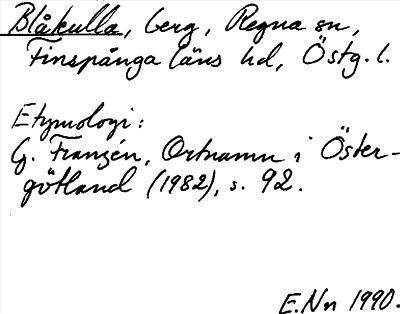 Blåkulla, berg, Regna sn,
Finspånga läns hd, Östg. l.
Etymologi:
G. Franzén, Ortnamn i Öster-
götland (1982), s. 92.
E.Nn 1990.